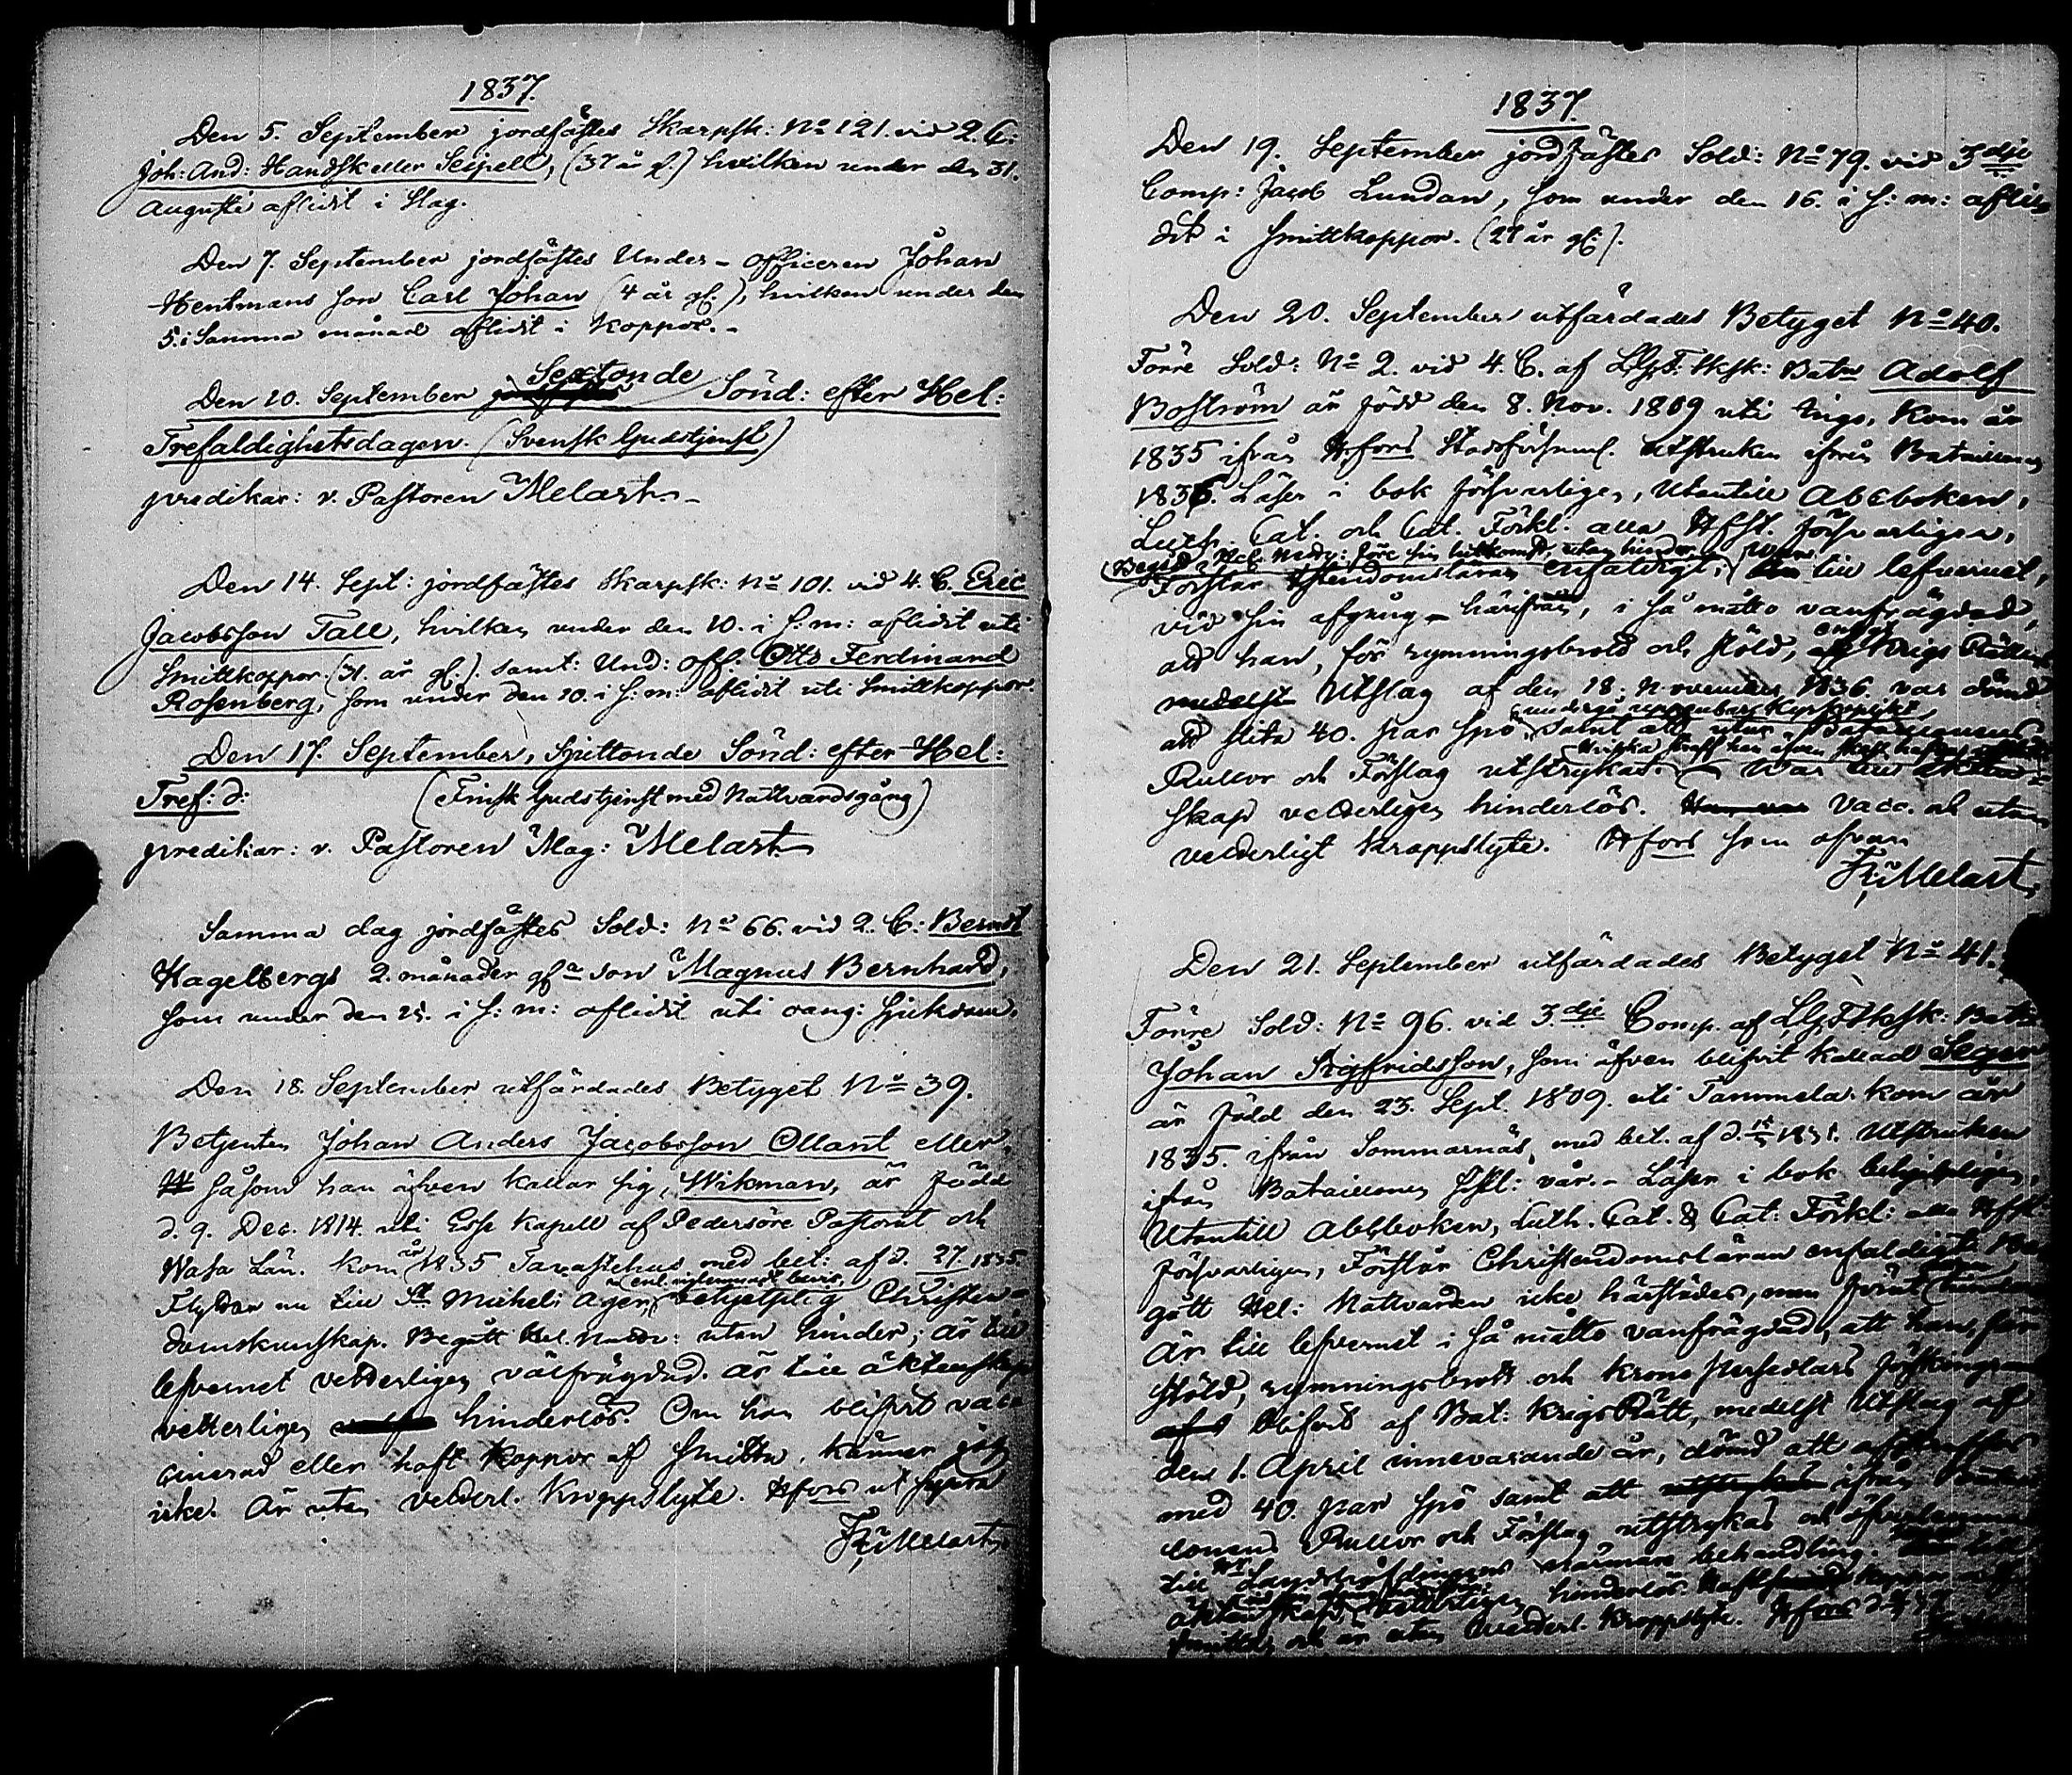 1837.
Den 5. September jordfästes Skarpsk: No 121. vid 2. C:
Joh: And: Handsk eller Seipell, (37 år gl.) hvilken under den 31.
Augusti aflidit i Slag.
Den 7. September jordfästes Under-officeren Johan
Hentmans son Carl Johan (4 år gl.), hvilken under den
5. i Samma månad aflidit i Koppor. -
Den 10. September Sextonde Sönd: efter Hel:
Trefaldighetsdagen. (Svensk Gudstjenst)
predikar: v. Pastoren Melart. -
Den 14. Sept: jordfästes Skarpsk: No 101. vid 4. C. Eric
Jacobsson Tall, hvilken under den 10. i s: m: aflidit uti
Smittkoppor. (31. år gl.). samt: Und: off. Otto Ferdinand
Rosenberg, som under den 10. i s: m: aflidit uti Smittkoppor.
Den 17. September, Sjuttonde Sönd: efter Hel:
Tref: d: (Finsk Gudstjenst med Nattvardsgång)
predikar: v. Pastoren Mag: Melart.
Samma dag jordfästes Sold: No 66. vid 2. C: Berndt
Hagelbergs 2. månader gla son Magnus Bernhard,
som under den i s: m: aflidit uti oang: sjukdom.
Den 18. September utfärdades Betyget No 39.
Betjenten Johan Anders Jacobsson Ollant eller,
såsom han äfven kallar sig, Wikman, är född
d. 9. Dec. 1814. uti Esse Kapell af Pedersöre Pastorat och
Wasa Län. Kom år 1835 Tavastehus med bet: af d. 27. 1835.
Flyttar nu till St Michel; Äger, enl. inlemnadt bevis,
Christen-
domskunskap. Begått Hel. Nattv: utan hinder; är till
lefvernet vetterligen välfrägdad. är till äktenskap
vetterligen hinderlös. Om han blifvit vacc
cinerad eller haft koppor af Smitta, känner jag
icke. Är utan vetterl. Kroppslyte. Hfors ut supra
Melart.
1837.
Den 19. September jordfästes Sold: No 79. vid 3dje
Comp: Jacob Lundan, som under den 16. i s: m: afli-
dit i Smittkoppor. (27 år gl:).
Den 20. September utfärdades Betyget No 40.
Förre Sold: No 2. vid 4. C. af Batn Adolf
Boström är född den 8. Nov. 1809 uti Ingo, Kom år
1835 ifrån Hfors Stadsförsaml. utstruken ifrån Bataillonen
1836. Läser i bok försvarligen, Utantill Abcboken,
Luth. Cat. och Cat. Förkl. alla Hfst. försvarligen,
Begått Hel. Nattv: före sin hitkomst, utan hinder
Förstår Xstendomsläran enfaldigt; Var till lefvernet,
vid sin afgång härifrån, i så måtto vanfrägdad,
att han, för rymningsbrott och stöld, Krigs Rättens
Utslag af den 18. November 1836. var dömd
att slita 40. par spö, undergå uppenbar Kyrkoplikt
samt att utur Bataillonens
Rullor och Förslag utstrykas. Var till äkten-
skap vetterligen hinderlös. Vacc. och utan
vetterligt Kroppslyte. Hfors som ofvan
Melart.
Den 21. September utfärdades Betyget No 41.
Förre Sold: No 96. vid 3.dje Comp. af Batn
Johan Sigfridsson, som äfven blifvit kallad Seger
är född den 23. Sept. 1809. uti Tammela. Kom år
1835. ifrån Sommarnäs, med bet. af d. 1831. Utstruken
ifrån Bataillonen år. - Läser i bok
Utantill Abcboken, Luth. Cat. & Cat: Förkl: alla Hfst
försvarligen, Förstår Christendomsläran enfaldigt. Be-
gått Hel: Nattvarden icke härstädes, men förut
Är till lefvernet i så måtto vanfrägdad, att han, för
stöld, rymningsbrott och Krono persedlars förskingrande
blifvit af Bat: Krigs Rätt, medelst Utslag af
den 1. April innevarande år, dömd att afstraffas
med 40. par spö samt att ifrån Batail-
lonens Rullor och Förslag utstrykas och öfverlemnas
till Hr Landshöfdingens närmare behandling. till
äktenskap vetterligen hinderlös. Haft koppor
smitta, och är utan vetterl. Kroppslyte. Hfors